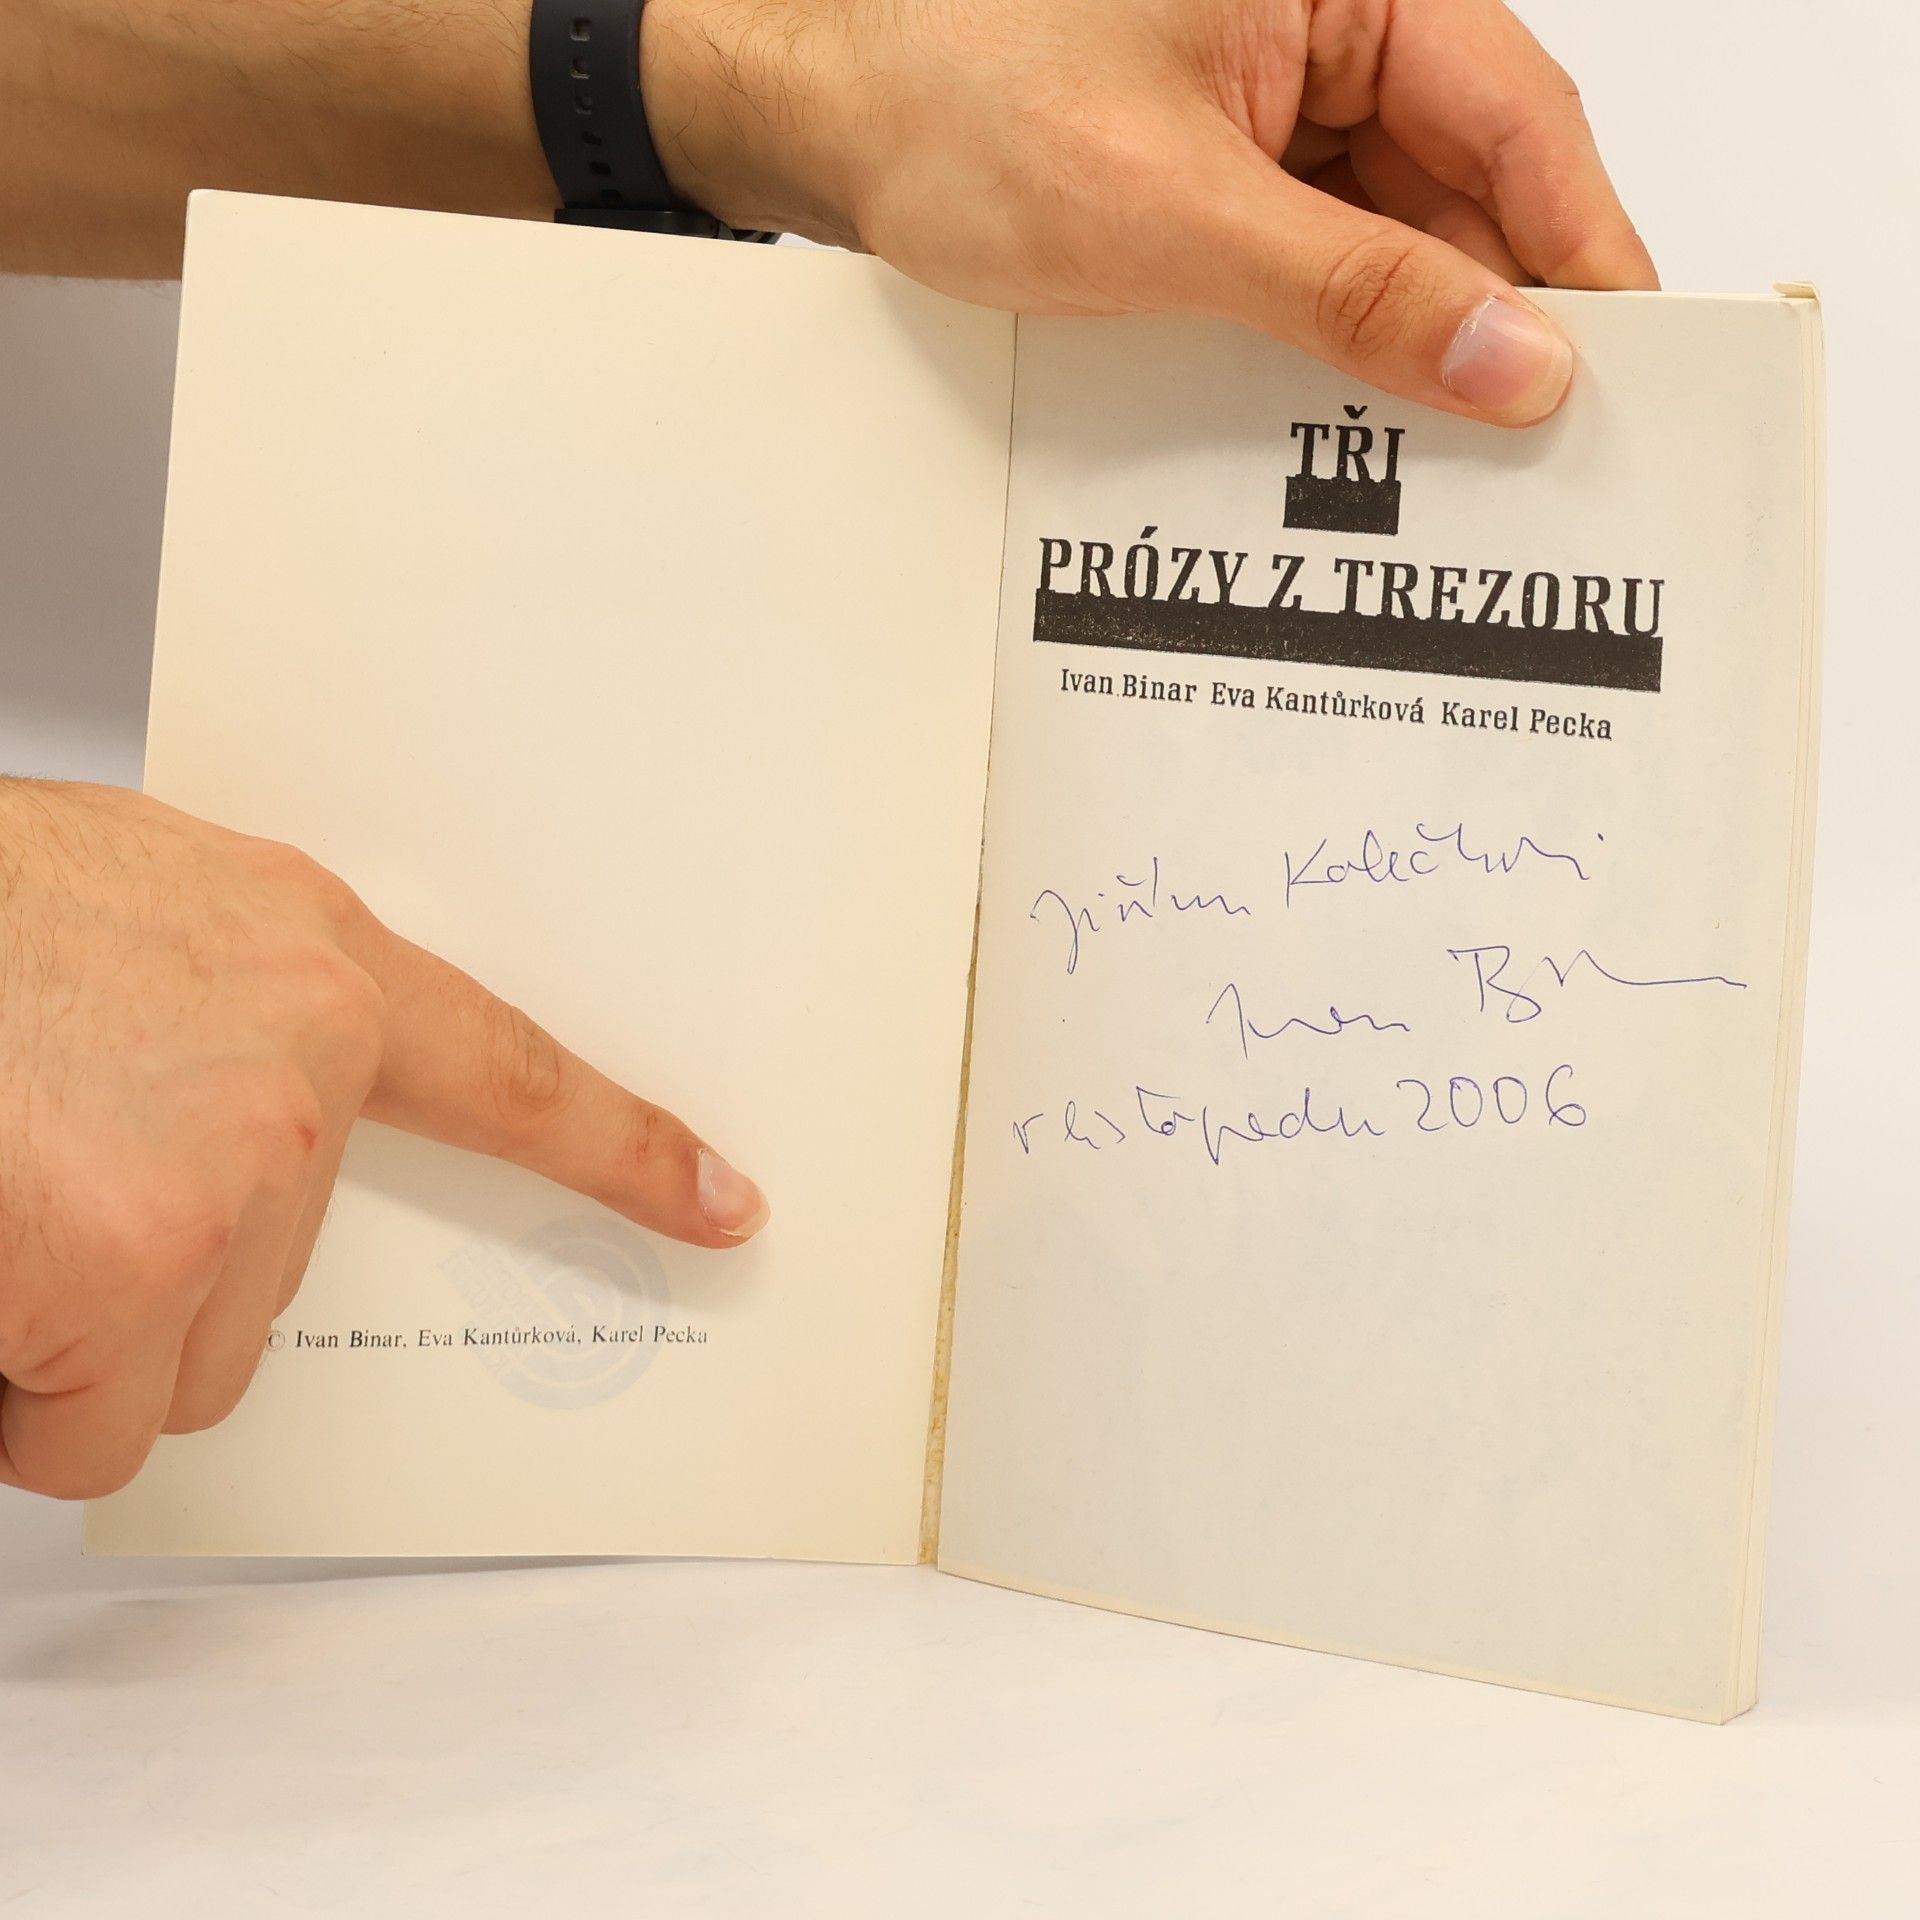 © Ivan Binar, Eva Kantůrková, Karel Pecka
TŘI
PRÓZY Z TREZORU
Ivan Binar Eva Kantůrková Karel Pecka
Kalečkovi
Ivan
v listopadu 2006